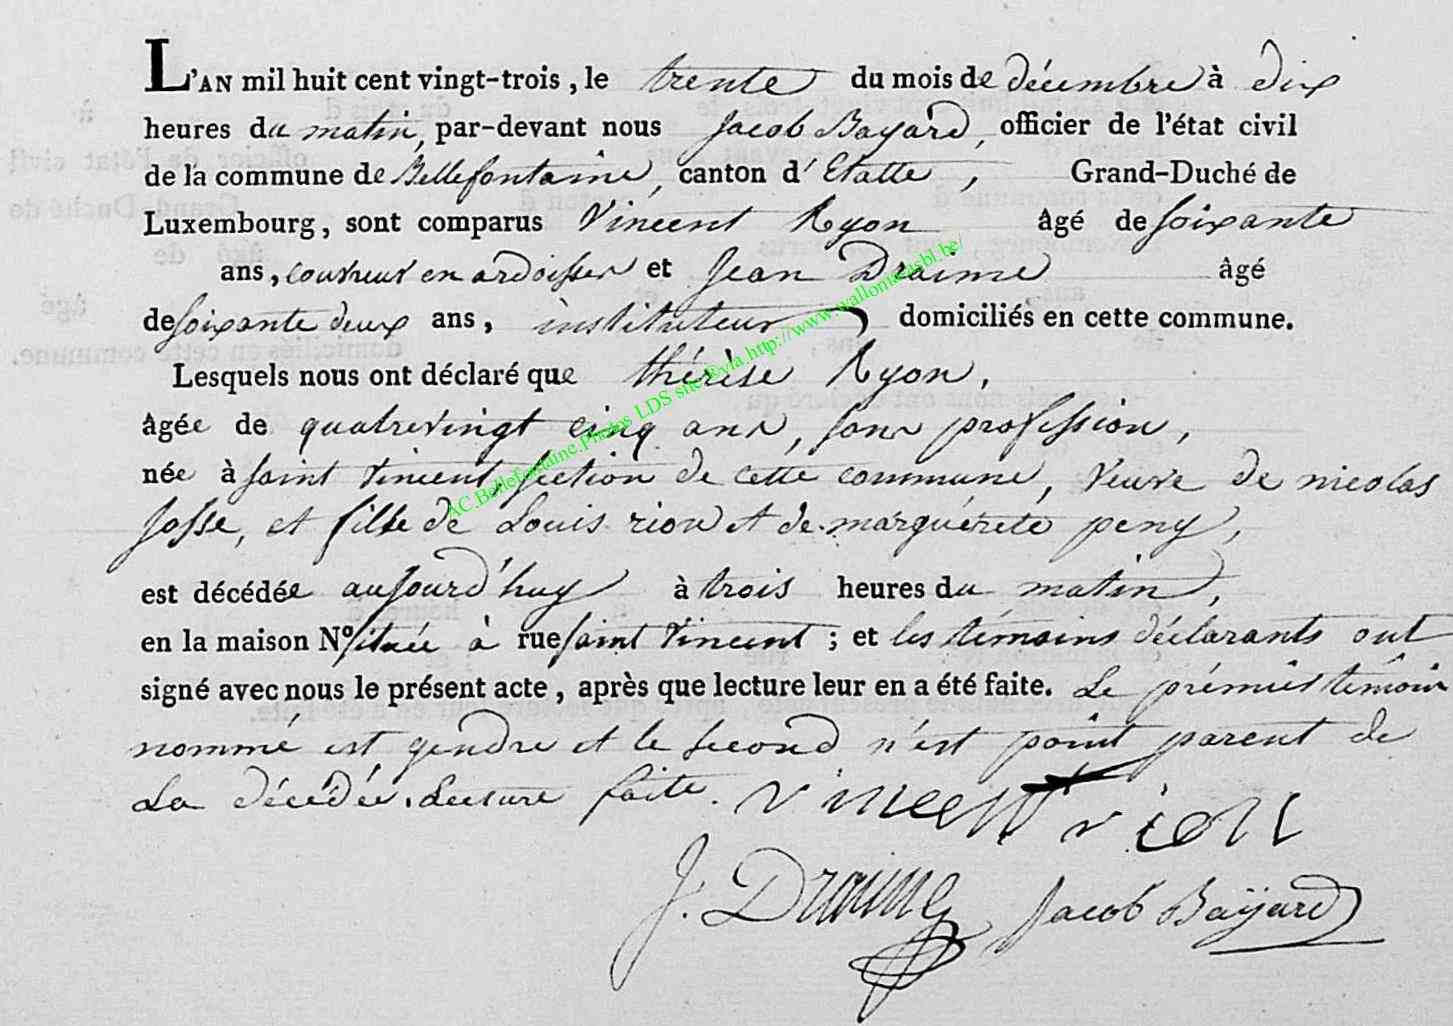 L'AN mil huit cent vingt-trois, le trente du mois de décembre à dix
heures du matin, par-devant nous Jacob Bayard, officier de l'état civil
de la commune de Bellefontaine, canton d'Etalle, Grand-Duché de
Luxembourg, sont comparus Vincent Ryon âgé de soixante
ans, couvreur en ardoisser et Jean Draime âgé
de soixante deux ans, instituteur domiciliés en cette commune.
Lesquels nous ont déclaré que thérèse Ryon,
âgée de quatrevingt cinq ans, sans profession,
née à saint vincent section de cette commune, veuve de nicolas
Josse, et fille de Louis rion et de marguérete peny,
est décédée aujourd'huy à trois heures du matin,
en la maison N° située à rue saint vincent ; et les témoins déclarants ont
signé avec nous le présent acte, après que lecture leur en a été faite. Le prémier témoin
nommé est gendre et le second n'est point parent de
La décédée. Lecture faite. vincent rion
J. Draime Jacob Bayard
AC.Bellefontaine.Photos LDS site ©via http://www.wallonia.asbl.be/